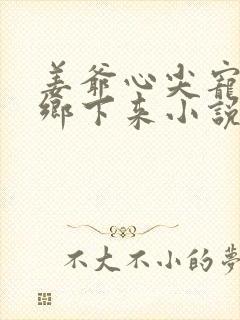 姜爺心尖寵
鄉下来小說
不大不小的夢